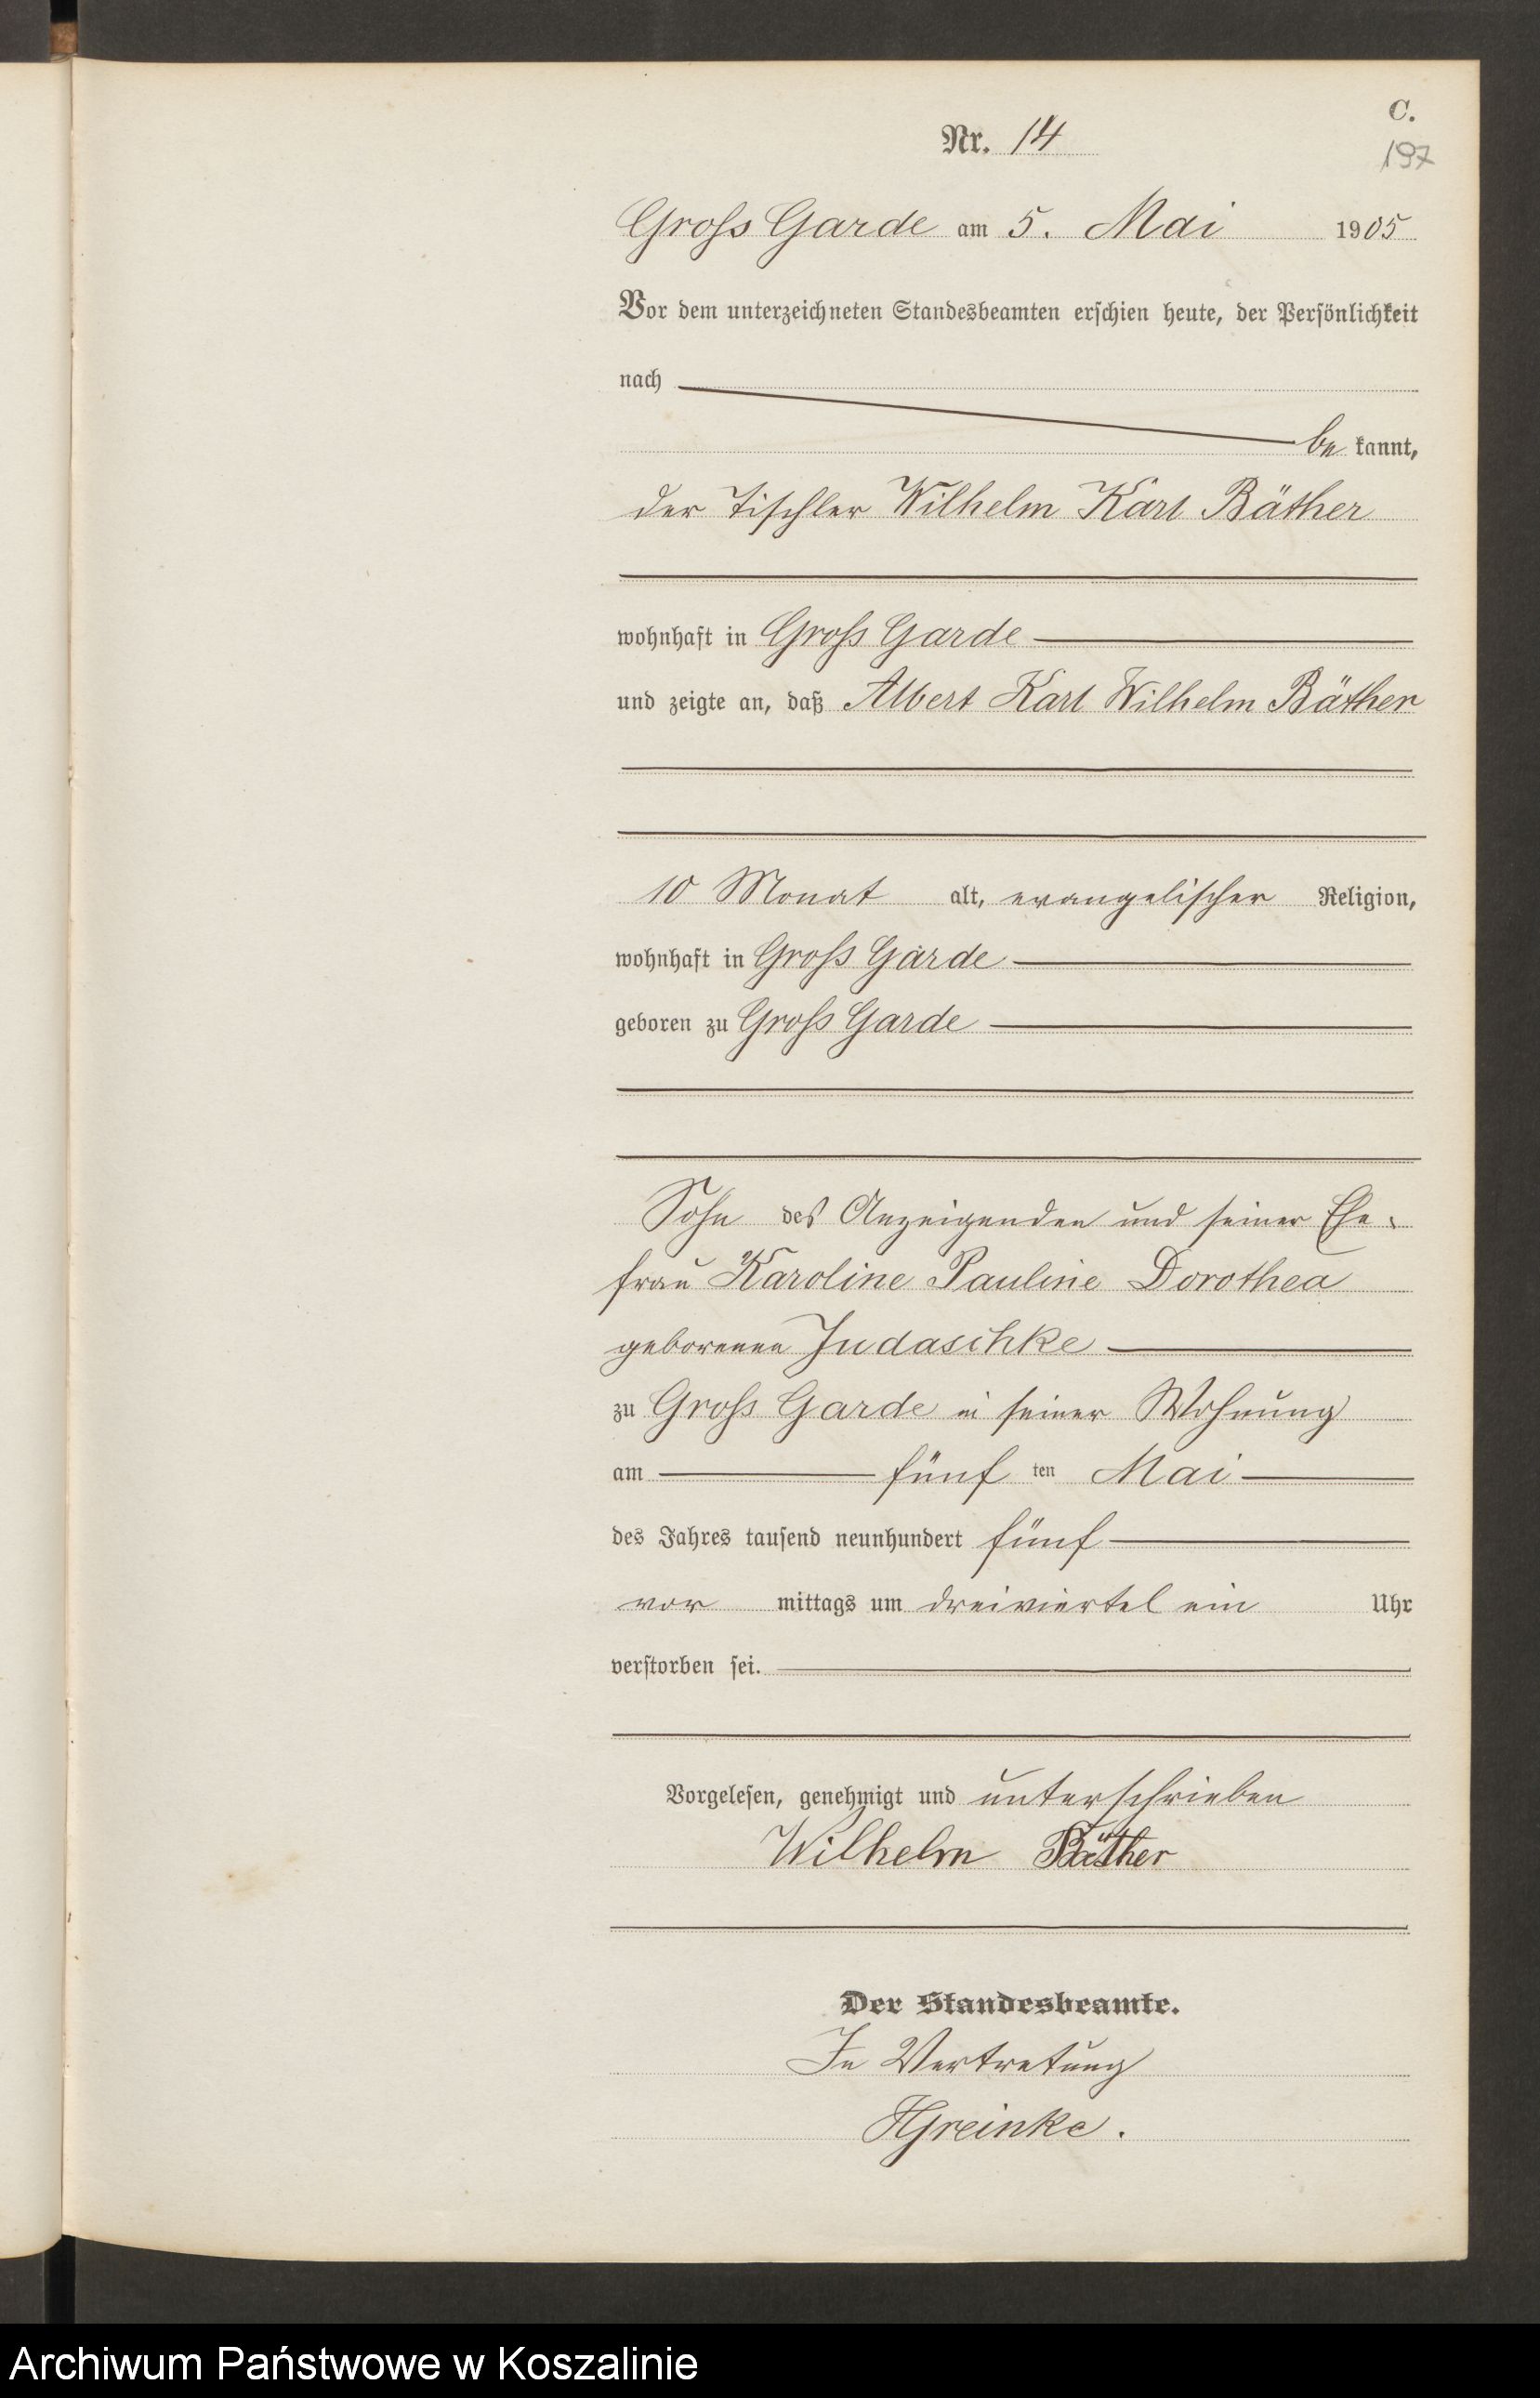 C.
Nr. 14
197
Gross Garde am 5. Mai 1905
Vor dem unterzeichneten Standesbeamten erschien heute, der Persönlichkeit
nach
be kannt,
der Tischler Wilhelm Karl Bäther
wohnhaft in Gross Garde
und zeigte an, daß Albert Karl Wilhelm Bäther
10 Monat alt, evangelischer Religion,
wohnhaft in Gross Garde
geboren zu Gross Garde
Sohn des Anzeigenden und seiner Ehe-
frau Karoline Pauline Dorothea
geborenen Judaschke
zu Gross Garde in seiner Wohnung
am fünf ten Mai
des Jahres tausend neunhundert fünf
vor mittags um dreiviertel ein Uhr
verstorben sei.
Vorgelesen, genehmigt und unterschrieben
Wilhelm Bäther
Der Standesbeamte.
In Vertretung
HGreinke.
Archiwum Państwowe w Koszalinie